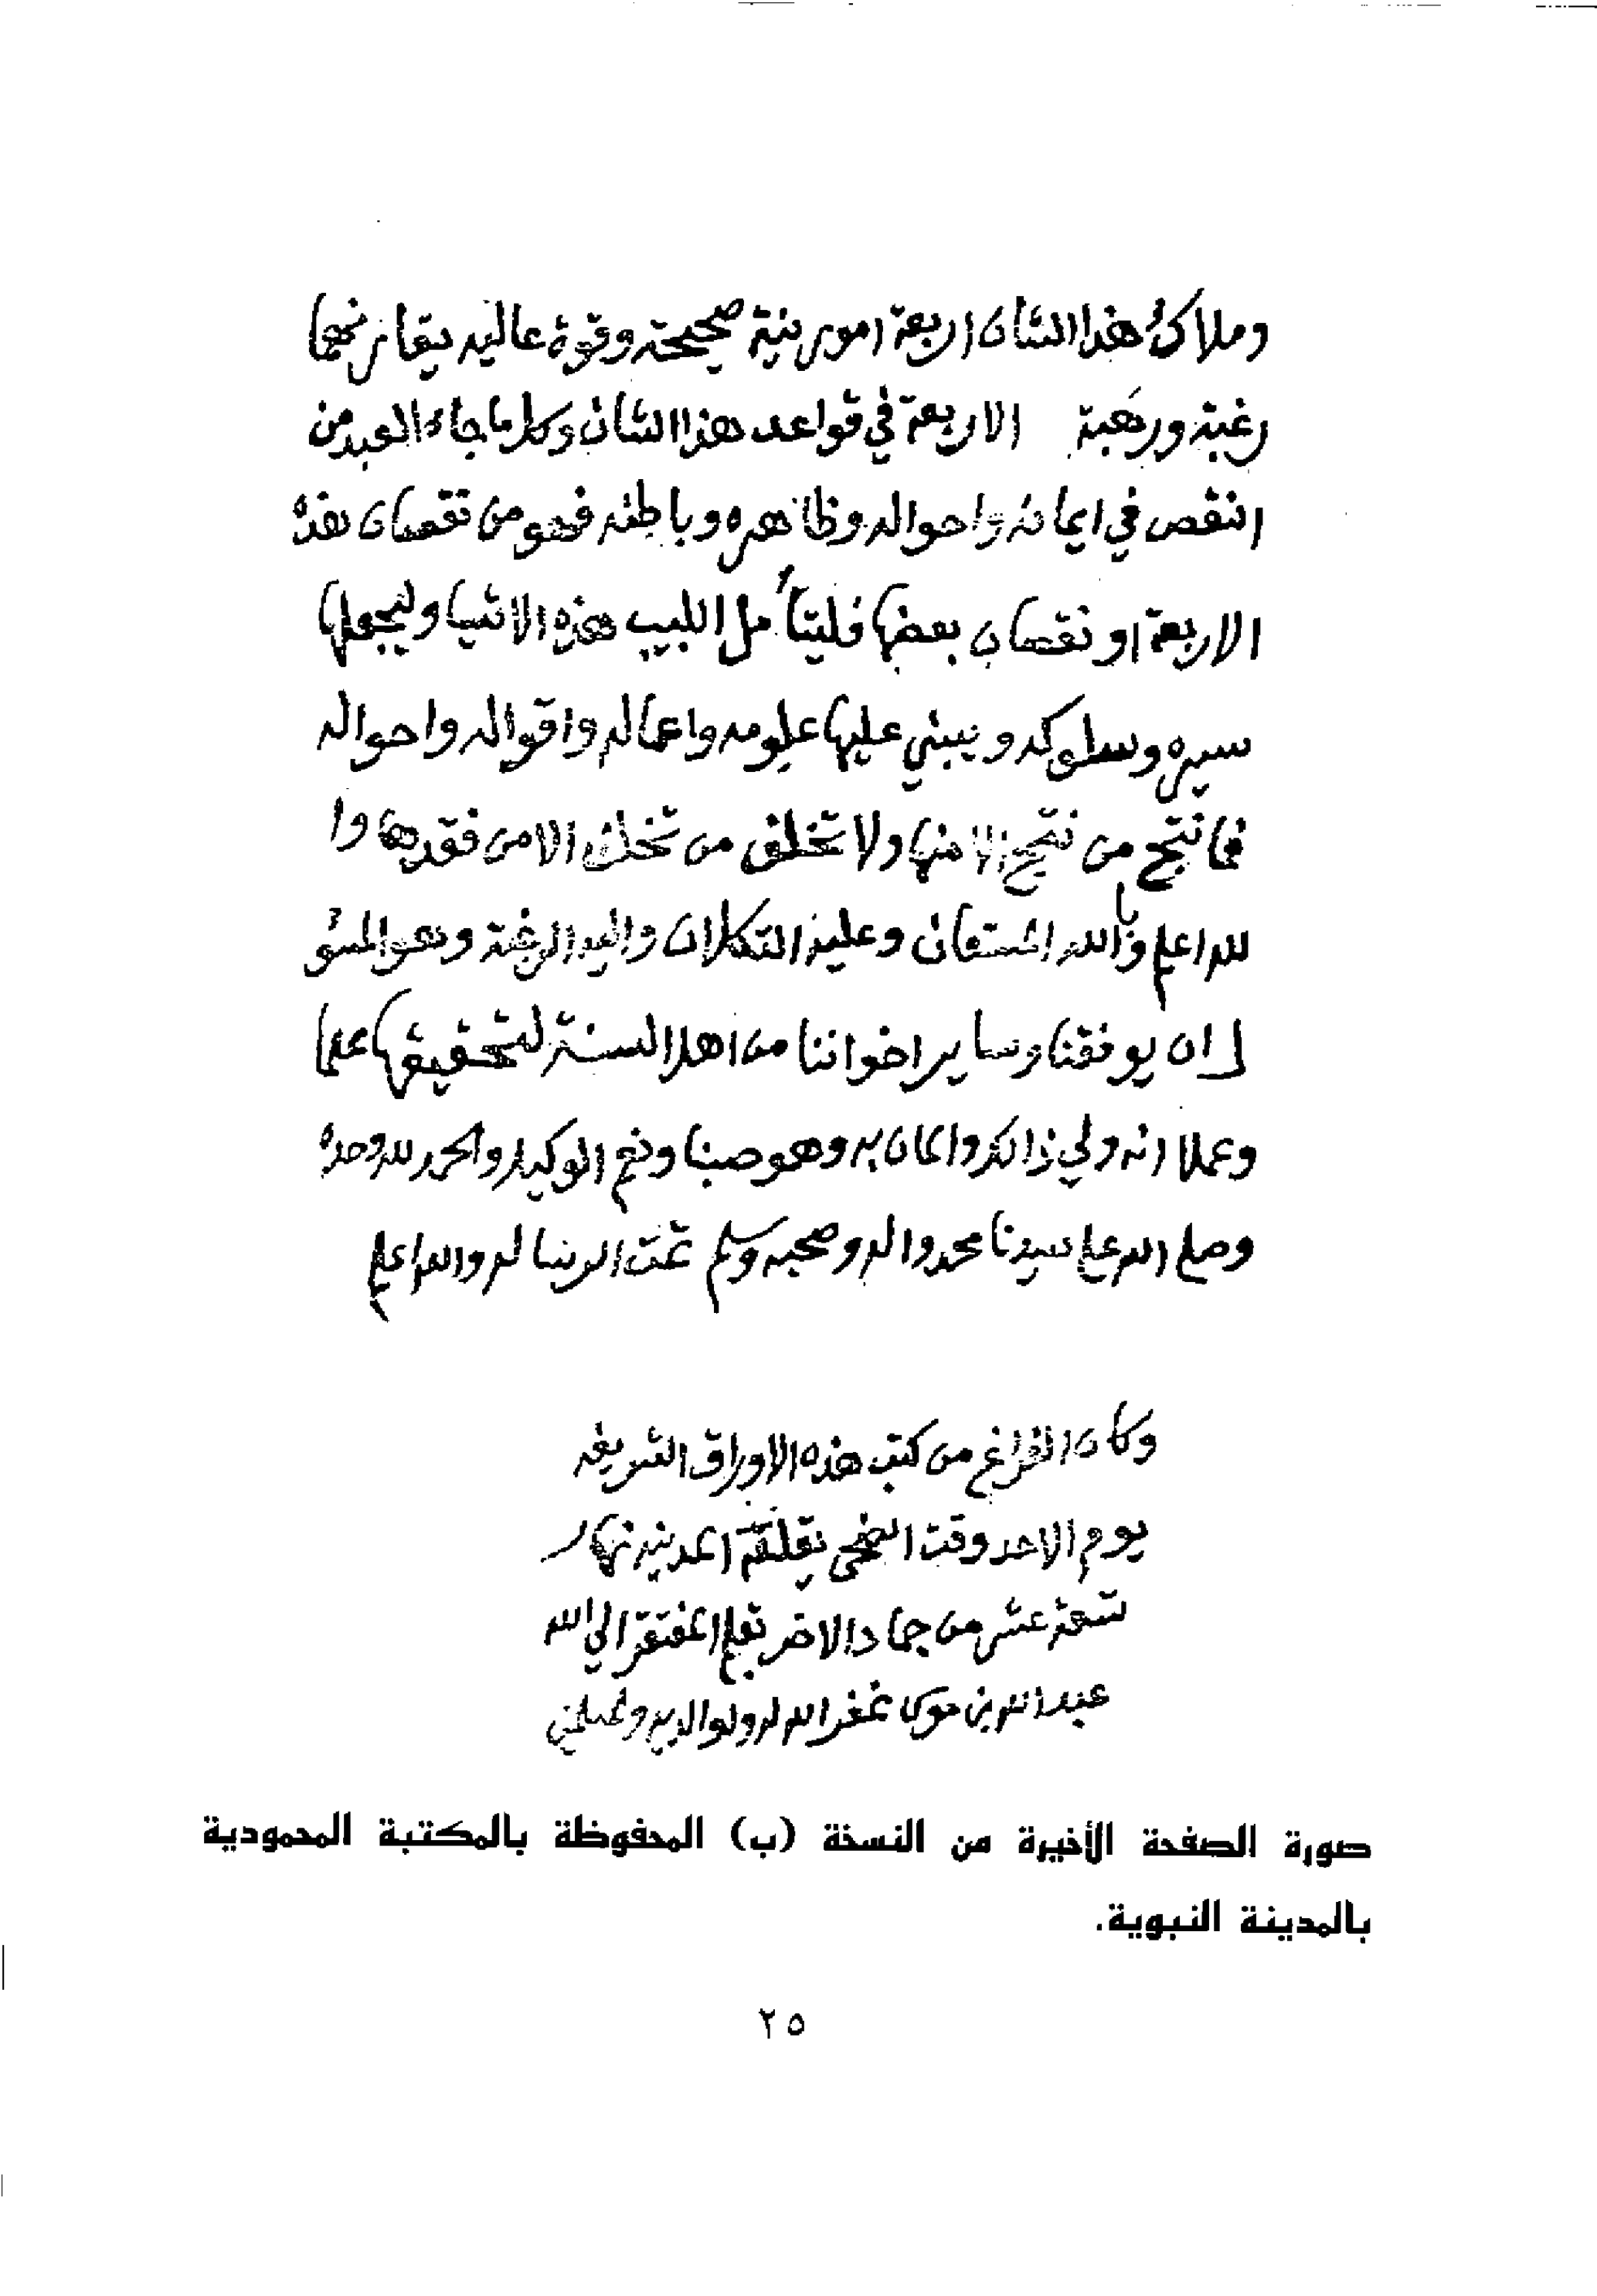 وملاك هذا الشان اربعة امور نية صحيحة وقوة عاليه يقارنهما
رغبة ورهبة الاربعة في قواعد هذا الشان وكل ما جاء العبد من
النقص في ايمانه واحواله وظاهره وباطنه فهو من نقصان هذه
الاربعة او نقصان بعضها فليتأمل اللبيب هذه الاشيا وليجعلها
سيره وسلوكه ويبني عليها علومه واعماله واقواله واحواله
فما نتج من نتج الا منها ولا تخلف من تخلف الا من فقدها وا
لله اعلم وبالله المستعان وعليه التكلان واليه الرغبة وهو المسؤ
ل ان يوفقنا وساير اخواننا من اهل السنة لتحقيقها علما
وعملا انه ولي ذالك والمان به وهو حسبنا ونعم الوكيل والحمد لله وحده
وصلى الله على سيدنا محمد واله وصحبه وسلم تمت الرسالة والله اعلم
وكان الفراغ من كتب هذه الاوراق الشريفه
يوم الاحد وقت الضحى المدينه نهار
تسعة عشر من جماد الاخر بقلم المفتقر الى الله
عبد الله بن موسى غفر الله له ولوالديه وللمسلمين
صورة الصفحة الأخيرة من النسخة (ب) المحفوظة بالمكتبة المحمودية
بالمدينة النبوية.
٢٥